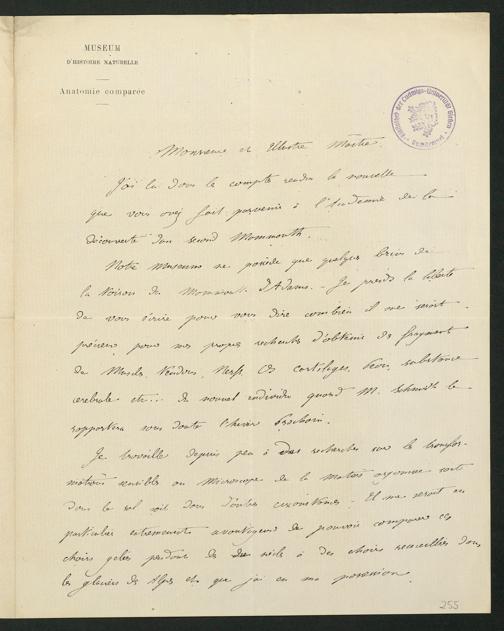 MUSEUM
D'HISTOIRE NATURELLE
Anatomie comparée
Monsieur et Illustre Maître
J'ai lu dans le compte rendu la nouvelle
que vous avez fait parvenir à l'Académie de la
découverte d'un second Mammouth.
Notre Museum ne possède que quelques brins de
la toison du Mammouth d'Adams. Je prends la liberté
de vous écrire pour vous dire combien il me serait
précieux pour mes propres recherches d'obtenir des fragments
de Muscles, tendons, Nerfs, Os, cartilages, Peau, substance
cérébrale etc... du nouvel individu quand M. Schmidt le
rapportera sans doute l'hiver prochain.
Je travaille depuis peu à des recherches sur les transfor-
mations sensibles au Microscope de la matière organique soit
dans le sol soit dans d'autres circonstances. Il me serait en
particulier extrêmement avantageux de pouvoir comparer ces
chairs gelées pendant des siècles à des chairs recueillies dans
les glaciers des Alpes et que j'ai en ma possession.
255